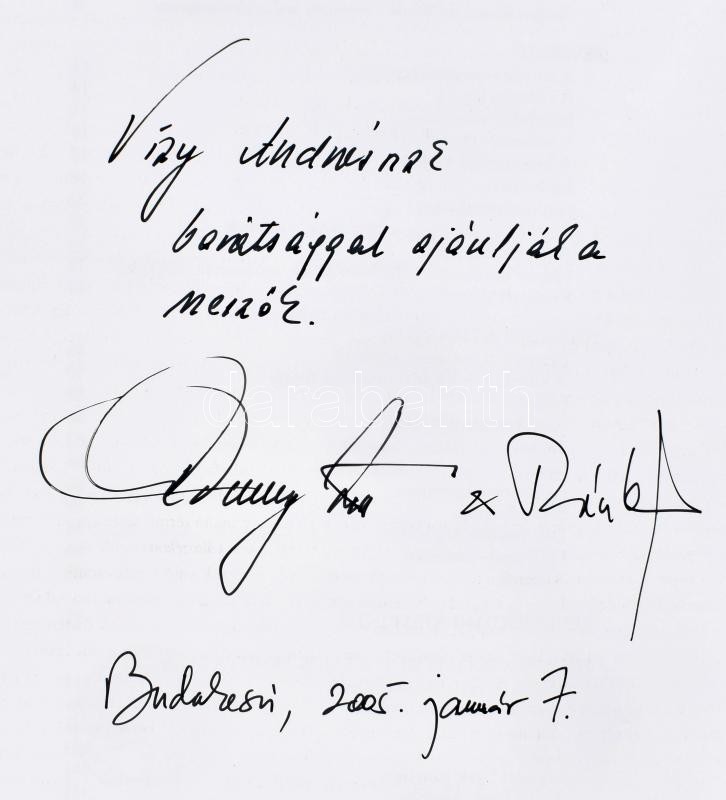 Vízy Andrásnak
barátsággal ajánlják a
szerzők.
darabanth
&
Budakeszi, 2005. január 7.